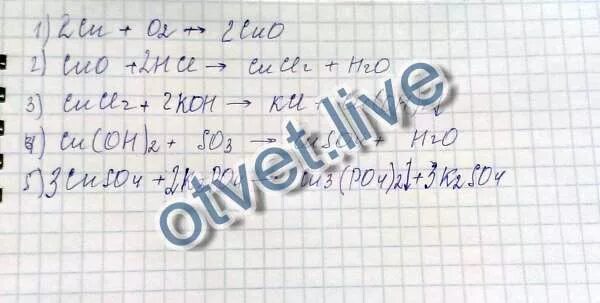 1) 2Cu + O2 → 2CuO
2) CuO + 2HCl → CuCl2 + H2O
3) CuCl2 + 2KOH → KCl +
4) Cu(OH)2 + SO3 → CuSO4 + H2O
5) 3CuSO4 + 2K3PO4 → Cu3(PO4)2↓ + 3K2SO4
otvet.live